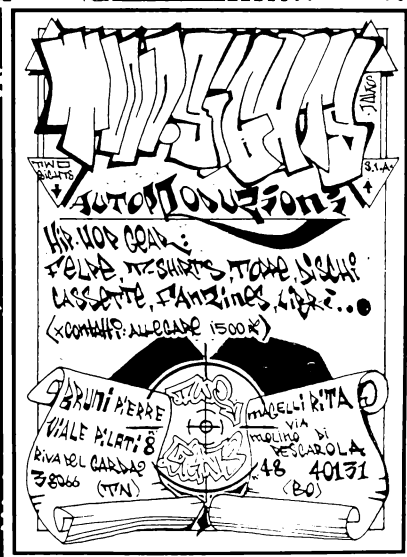 TWO.SIGHTS
JAWS
TWO
SIGHTS
S.I.A.
AUTOPRODUZIONI
HIP-HOP GEAR:
FELPE, T-SHIRTS, TOPPE, DISCHI
CASSETTE, FANZINES, LIBRI...
(x CONTATTI: ALLEGARE 1500 £)
BRUNI PIERRE
VIALE PILATI 8
RIVA DEL GARDA
38066
(TN)
TWO
SIGHTS
MAGELLI RITA
VIA
MOLINO DI
PESCAROLA
48 40131
(BO)